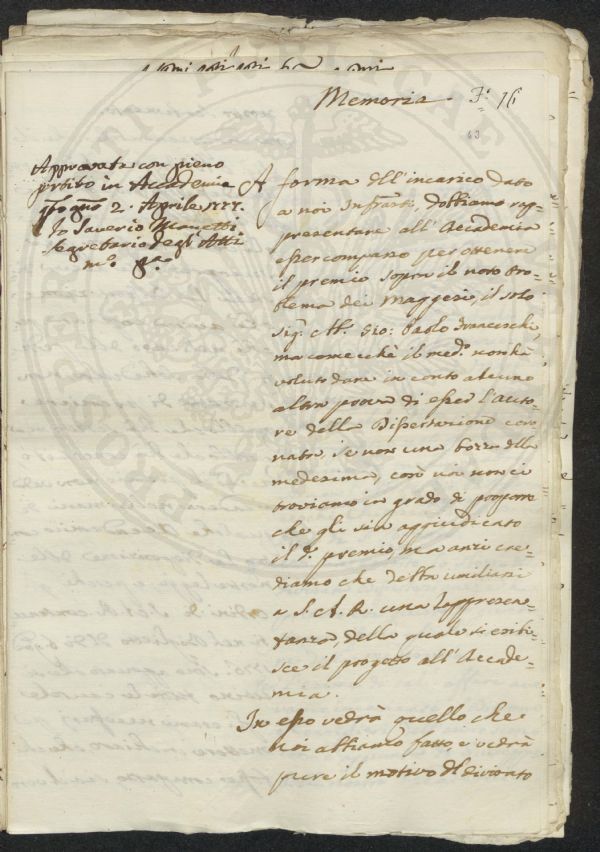 Memoria.
F: 16
63
Approvata con pieno
partito in Accademia
2. Aprile 1777.
Io Saverio Manetti
Segretario degl'Atti
mo.
A forma dell'incarico dato
a noi Infratti, dobbiamo rap=
presentare all'Accademia
esser comparso per ottenere
il premio sopra il noto Pro=
blema dei Maggesi, il solo
Sig. Ab. Gio: Paolo Franceschi,
ma comecchè il med.o non ha
voluto dare in conto alcuno
altra prova di esser l'Auto=
re della Dissertazione coro=
nata, se non una bozza della
medesima, così noi non ci
troviamo in grado di proporre
che gli sia aggiudicato
il d.o premio, ma anzi cre=
diamo che debba umiliarsi
a S. A. R. una Rappresen=
tanza, della quale si esibi=
sce il progetto all'Accade=
mia.
In esso vedrà quello che
noi abbiamo fatto, e vedrà
pure il motivo del